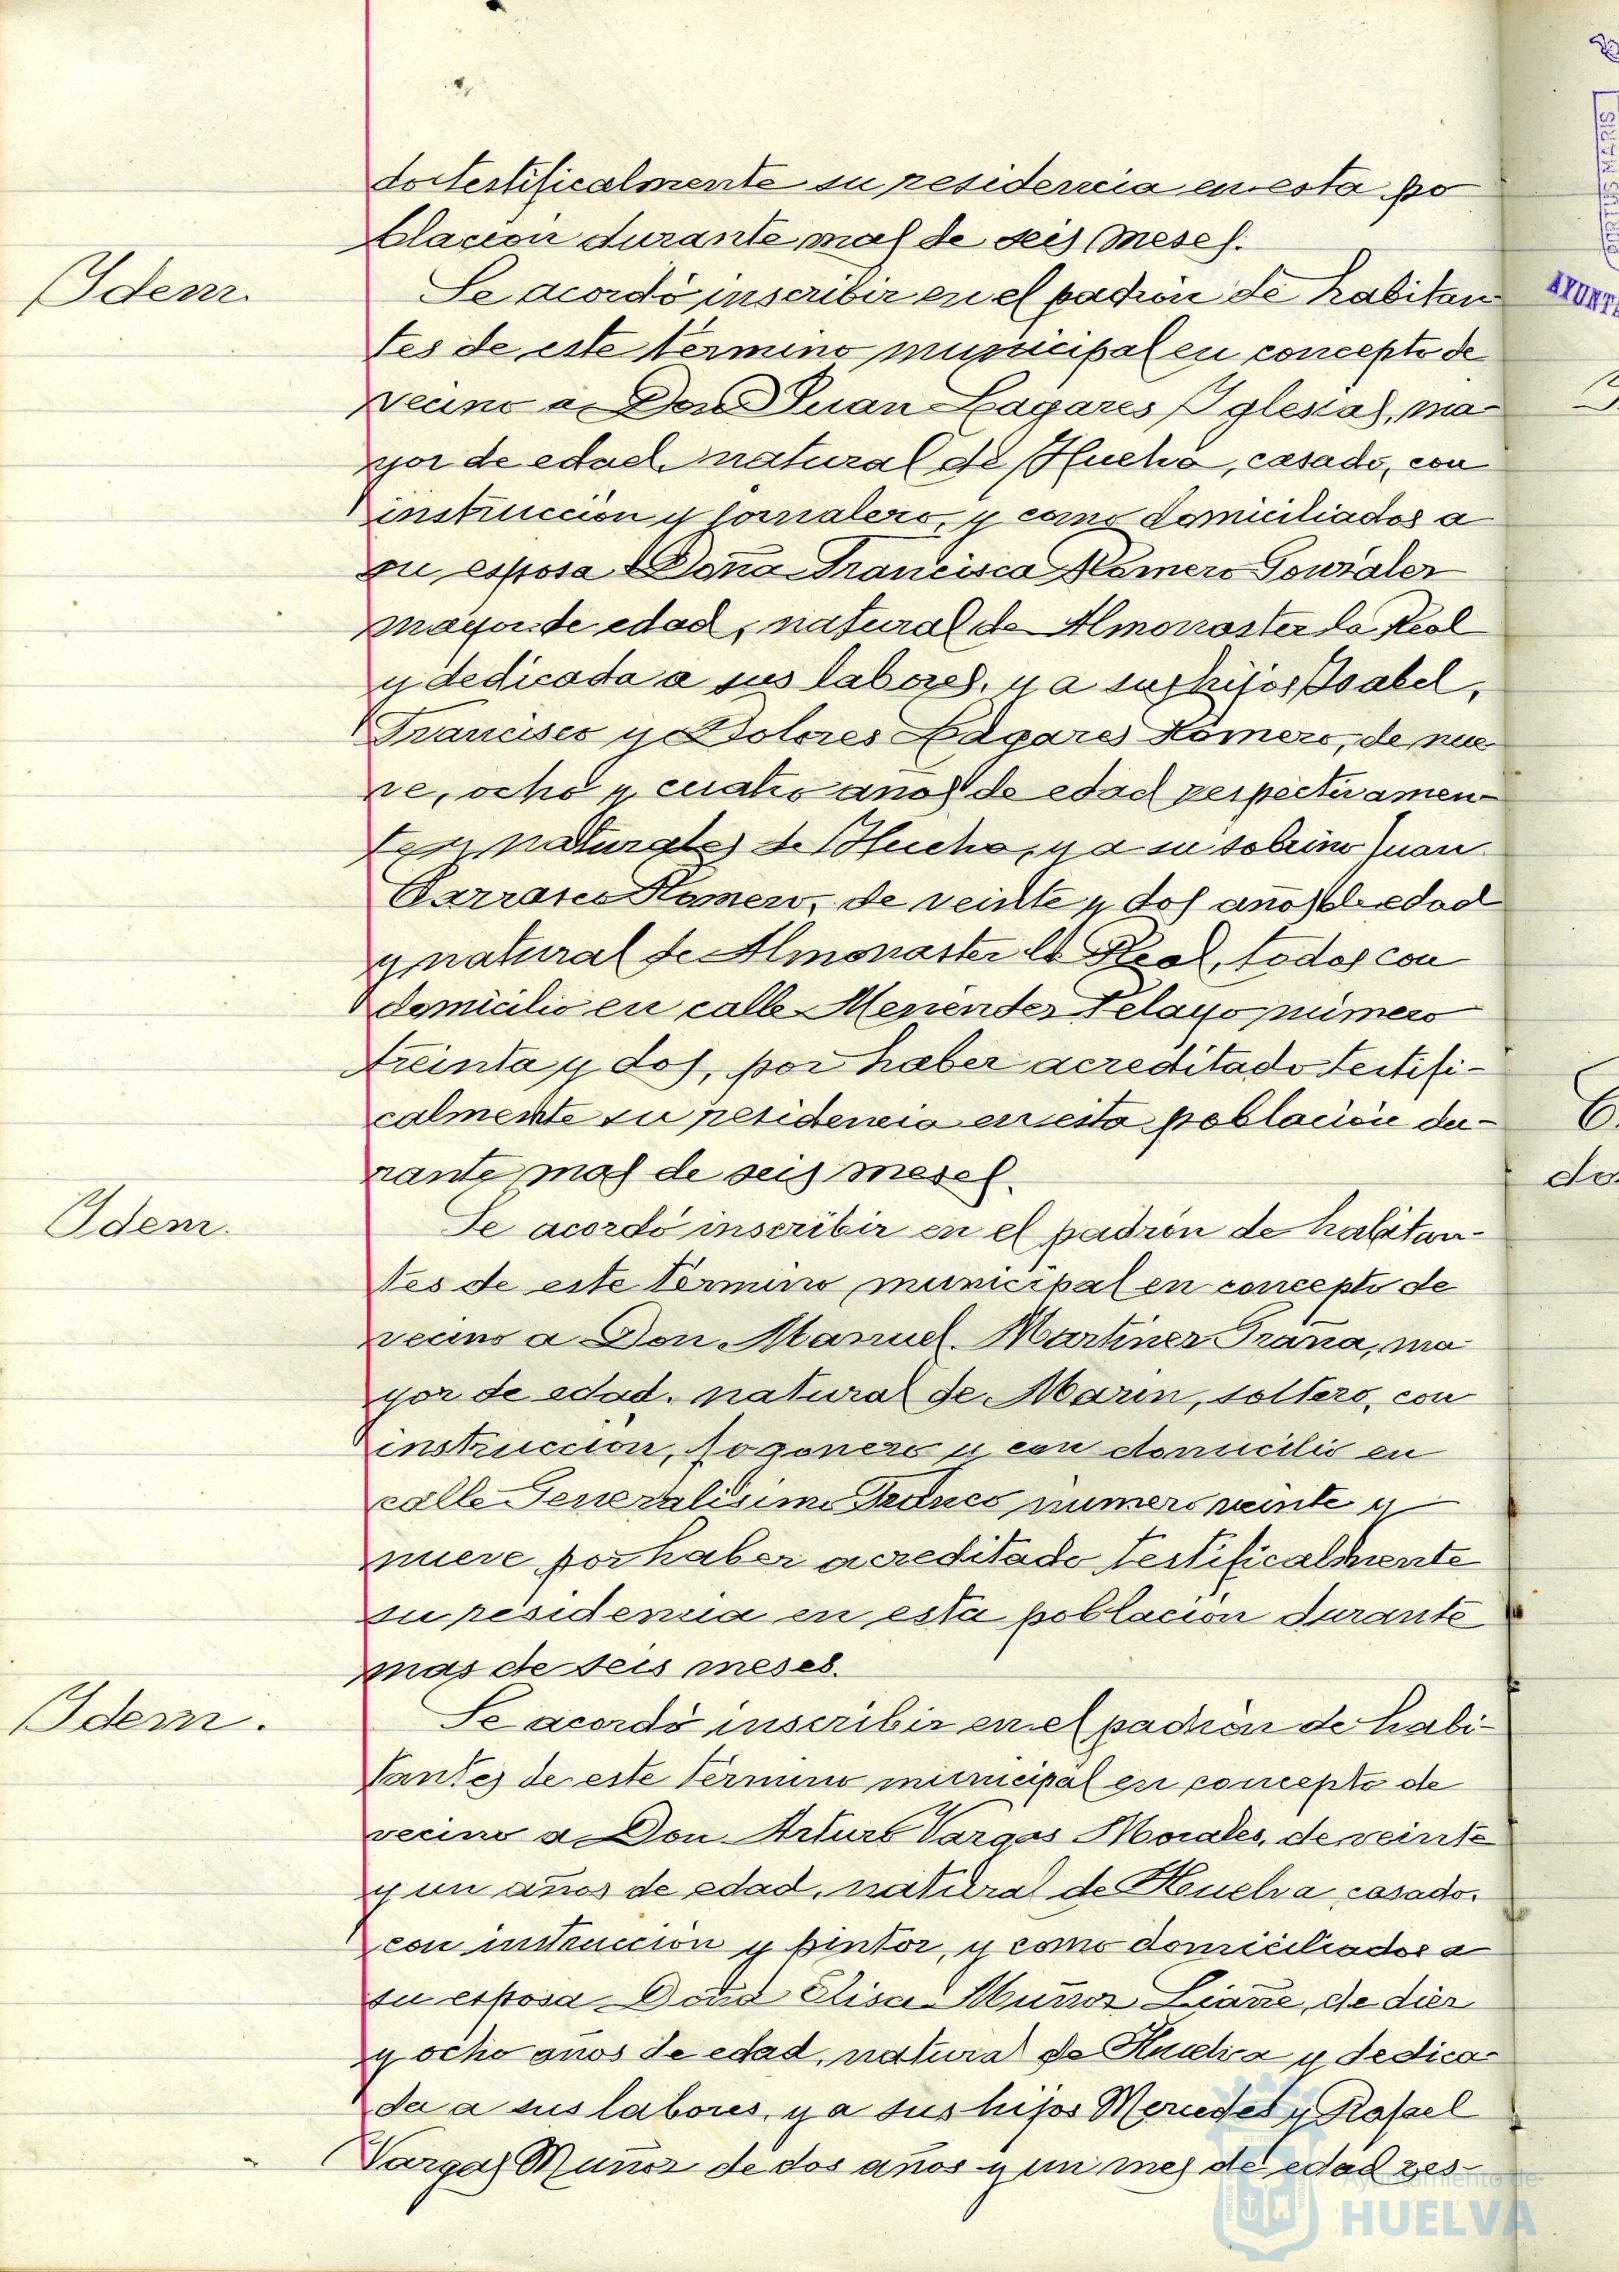 do testificalmente su residencia en esta po
blacion durante mas de seis meses.
Idem.
Se acordó inscribir en el padrón de habitan
tes de este término municipal en concepto de
vecino a Don Juan Lagares Iglesias, ma
yor de edad, natural de Huelva, casado, con
instrucción y jornalero, y como domiciliados a
su esposa Doña Francisca Romero González
mayor de edad, natural de Almonaster la Real
y dedicada a sus labores, y a sus hijos Isabel,
Francisco y Dolores Lagares Romero, de nue
ve, ocho y cuatro años de edad respectivamen
te y naturales de Huelva, y a su sobrino Juan
Romero, de veinte y dos años de edad
y natural de Almonaster la Real, todos con
domicilio en calle Menendez Pelayo número
treinta y dos, por haber acreditado testifi-
calmente su residencia en esta población du-
rante mas de seis meses.
Idem.
Se acordó inscribir en el padrón de habitan-
tes de este término municipal en concepto de
vecino a Don Manuel Martinez Graña, ma
yor de edad, natural de Marin, soltero, con
instrucción, fogonero y con domicilio en
calle Generalisimo Franco número veinte y
nueve por haber acreditado testificalmente
su residencia en esta poblacion durante
mas de seis meses.
Idem.
Se acordó inscribir en el padrón de habi-
tantes de este término municipal en concepto de
vecino a Don Arturo Vargas Morales, de veinte
y un años de edad, natural de Huelva, casado,
con instrucción y pintor, y como domiciliados a
su esposa Doña Elisa Muñoz, de diez
y ocho años de edad, natural de Huelva y dedica
da a sus labores, y a sus hijos Mercedes y Rafael
Vargas Muñoz de dos años y un mes de edad res-
Ayuntamiento de
HUELVA